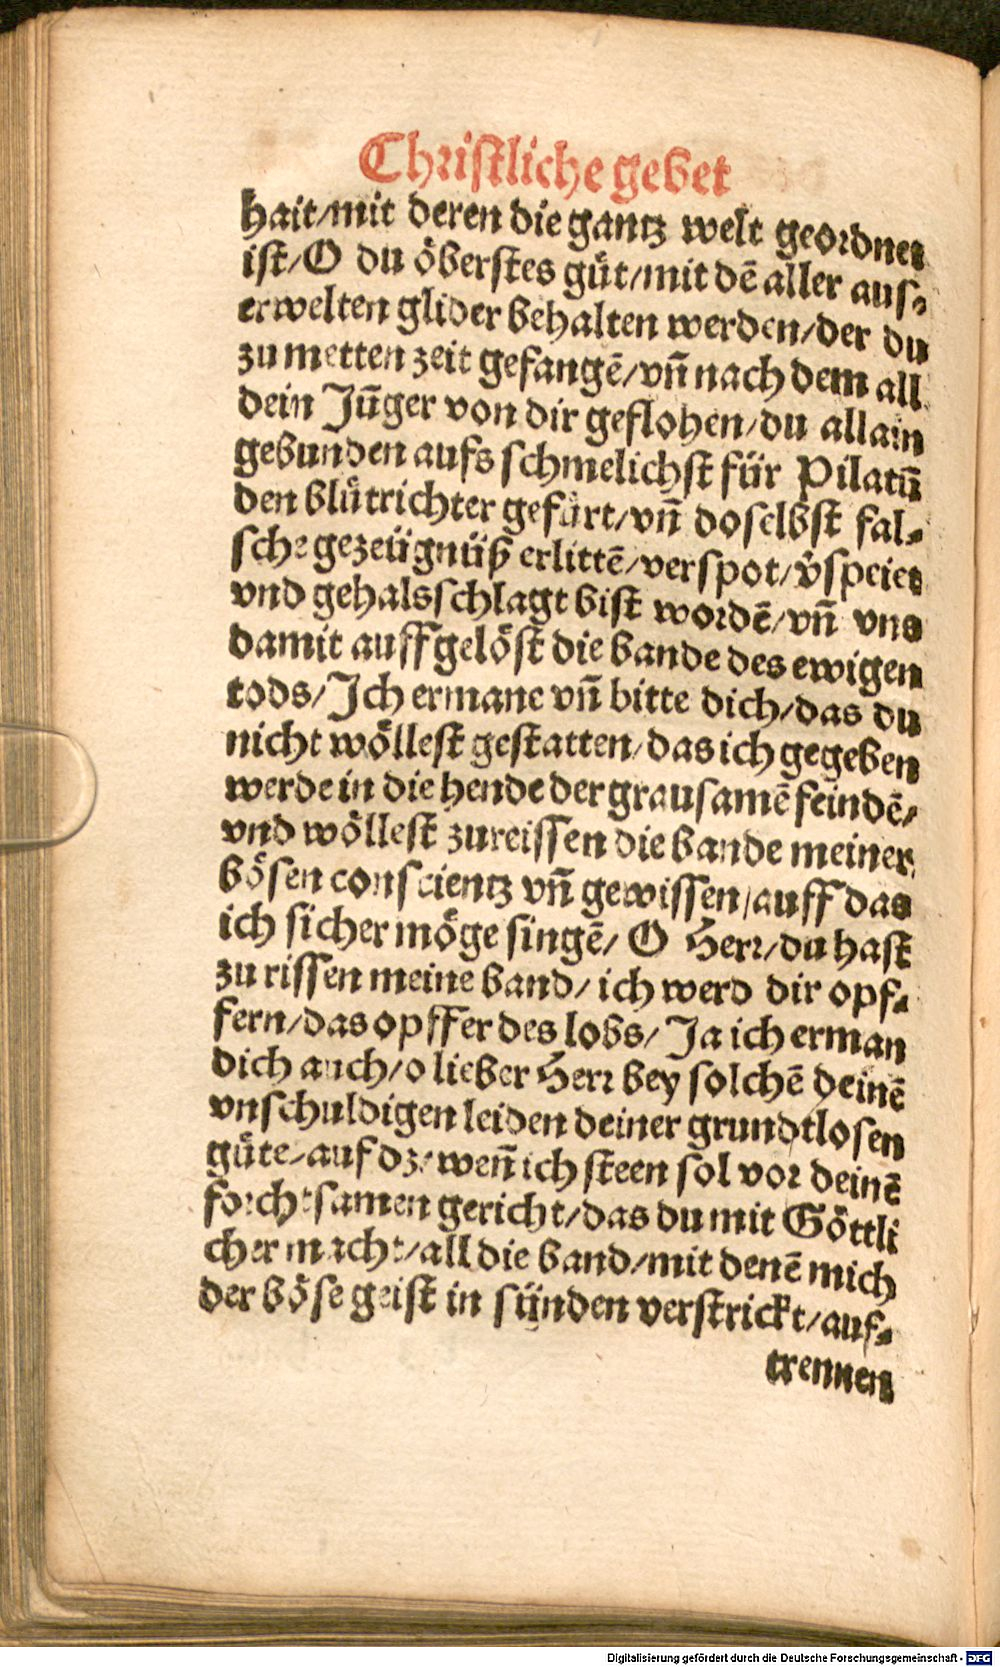 Christliche gebet
hait/mit deren die gantz welt geordnet
ist/O du öberstes gůt/mit dē aller aus⸗
erwelten glider behalten werden/der du
zu metten zeit gefangē/vn̄ nach dem all
dein Jūger von dir geflohen/du allain
gebunden aufs schmelichst für Pilatū
den blůtrichter gefürt/vn̄ doselbst fal⸗
sche gezeügnüß erlittē/verspot/v̊speiet
vnd gehalsschlagt bist wordē/vn̄ vns
damit auffgelöst die bande des ewigen
tods/Ich ermane vn̄ bitte dich/das du
nicht wöllest gestatten/das ich gegeben
werde in die hende der grausamē feindē/
vnd wöllest zureissen die bande meiner
bösen conscientz vn̄ gewissen/auff das
ich sicher möge singē/O Herr/du hast
zu rissen meine band/ich werd dir opf⸗
fern/das opffer des lobs/Ja ich erman
dich auch/o lieber Herr bey solchē deinē
vnschuldigen leiden deiner grundtlosen
gůte/auf dz/wen̄ ich steen sol vor deinē
forchtsamen gericht/das du mit Göttli
cher macht/all die band/mit denē mich
der böse geist in sünden verstrickt/auf⸗
trennen
Digitalisierung gefördert durch die Deutsche Forschungsgemeinschaft - DFG